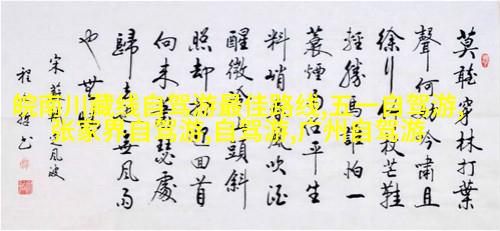 皖南川藏线自驾游最佳路线,五一自驾游,
张家界自驾游,自驾游,广州自驾游
莫聽穿林打葉
聲何吟嘯且
徐行杖芒鞋
輕勝馬誰怕一
蓑煙平生
料峭吹酒
醒微冷頭斜
照却迎回首
向來蕭瑟處
歸去無風雨
也無晴
宋蘇定風波
程